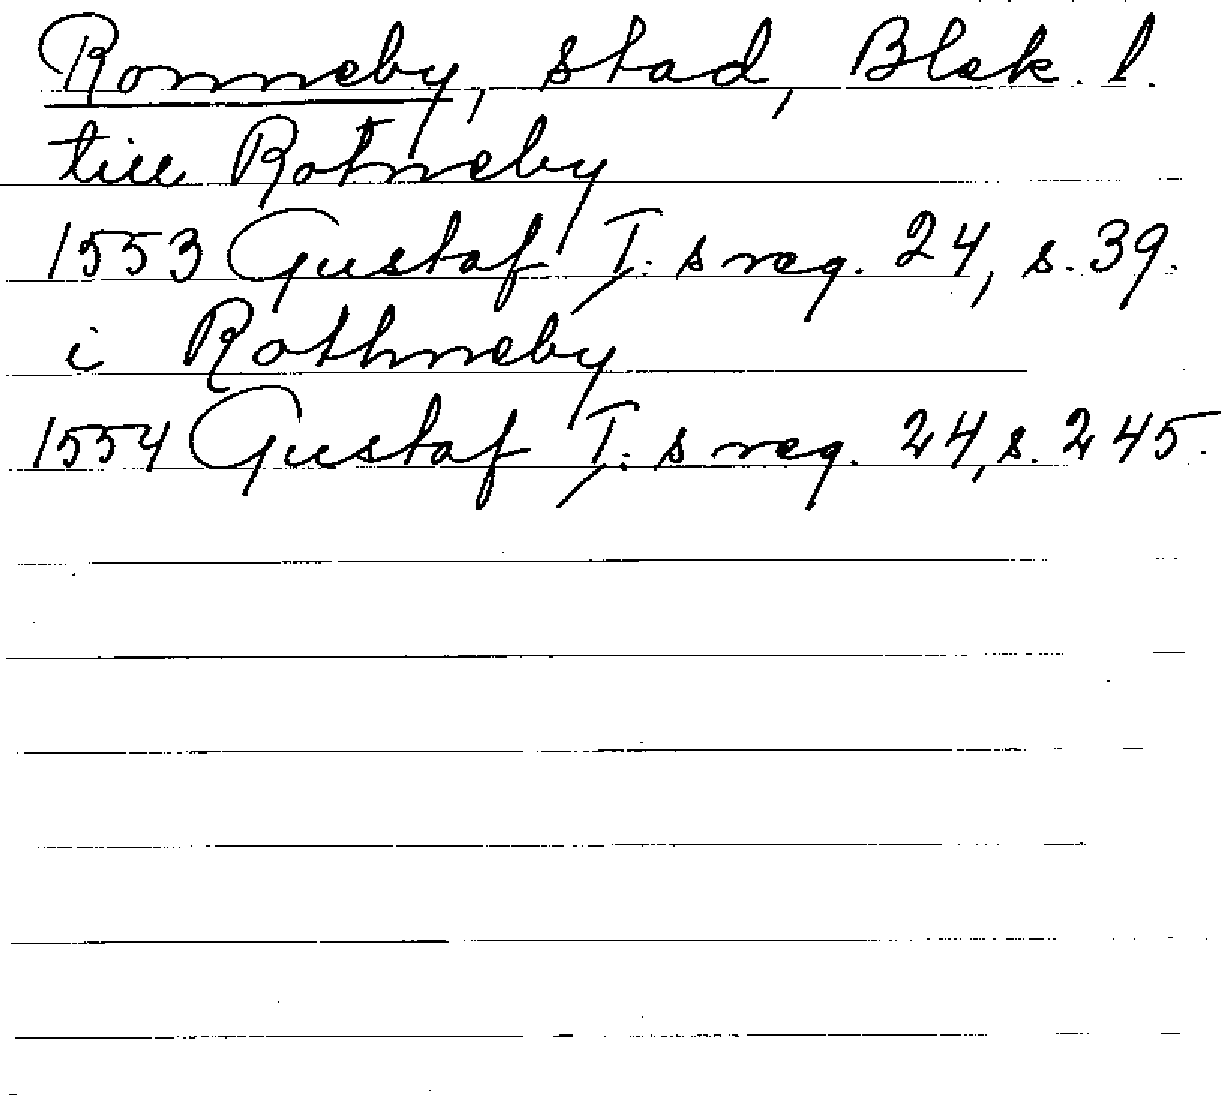 Ronneby, stad, Blek. l.
till Rotneby
1553 Gustaf I:s reg. 24, s. 39.
i Rothneby
1554 Gustaf I:s reg. 24, s. 245.